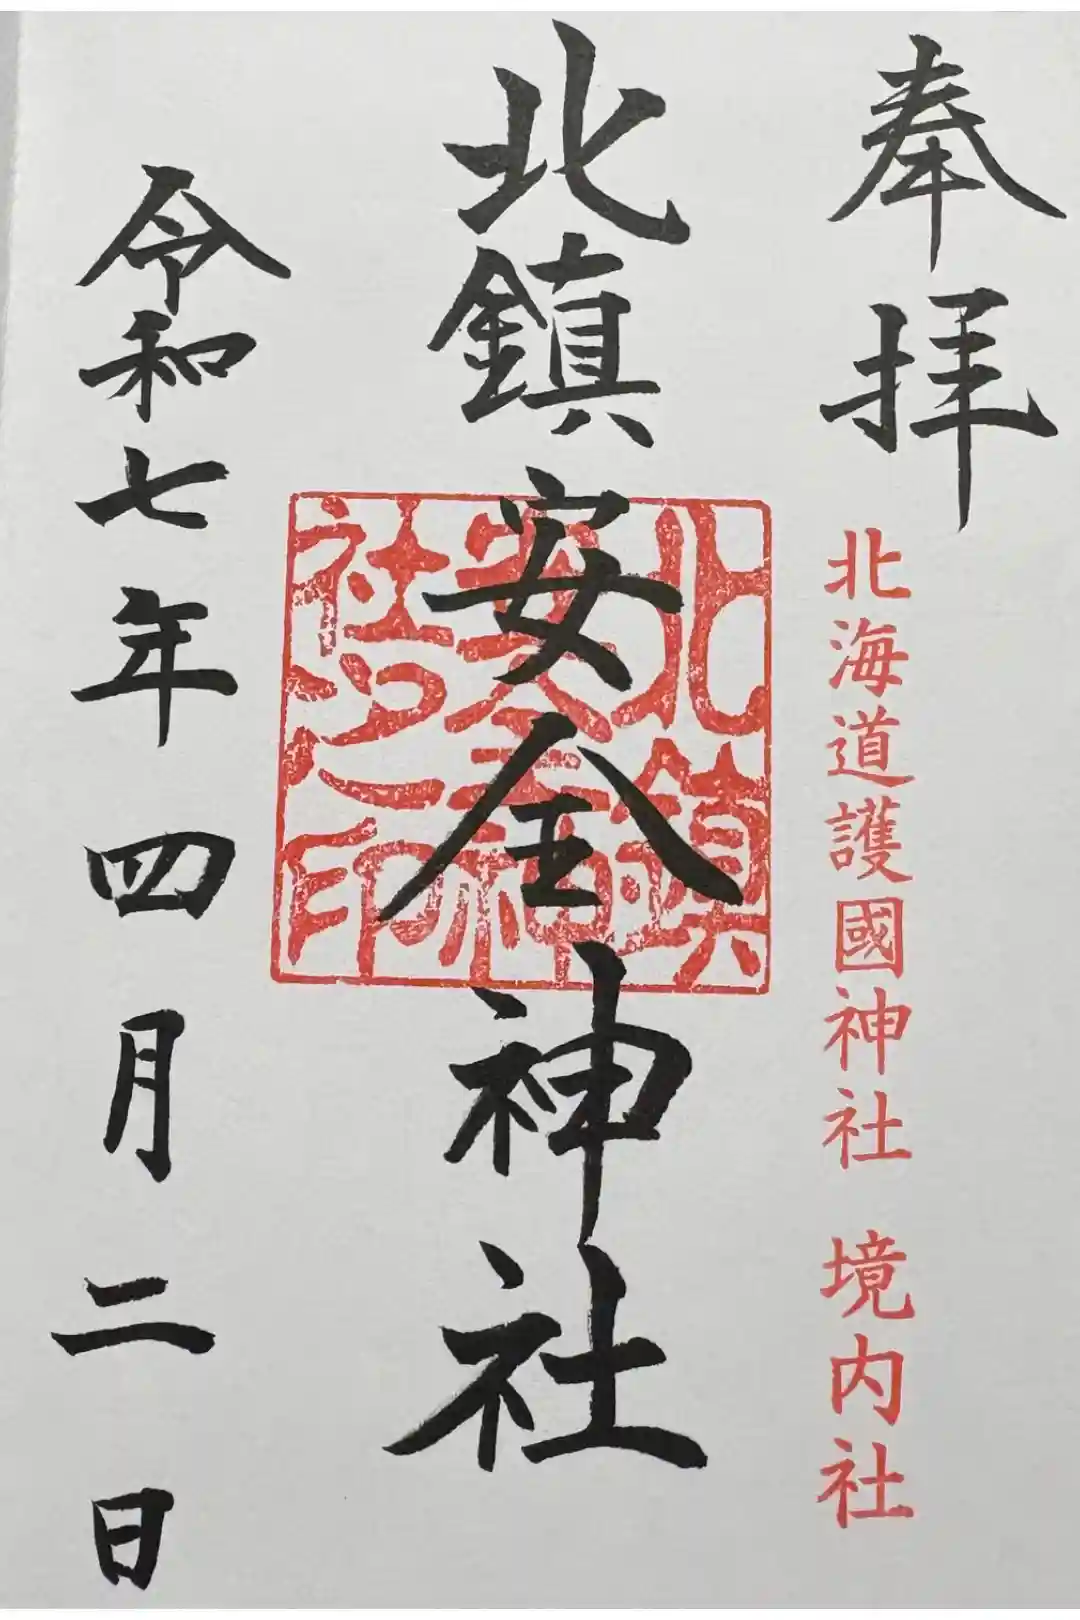 奉拝
北海道護國神社 境内社
北鎮安全神社
北鎮
安全神
社之印
令和七年四月二日